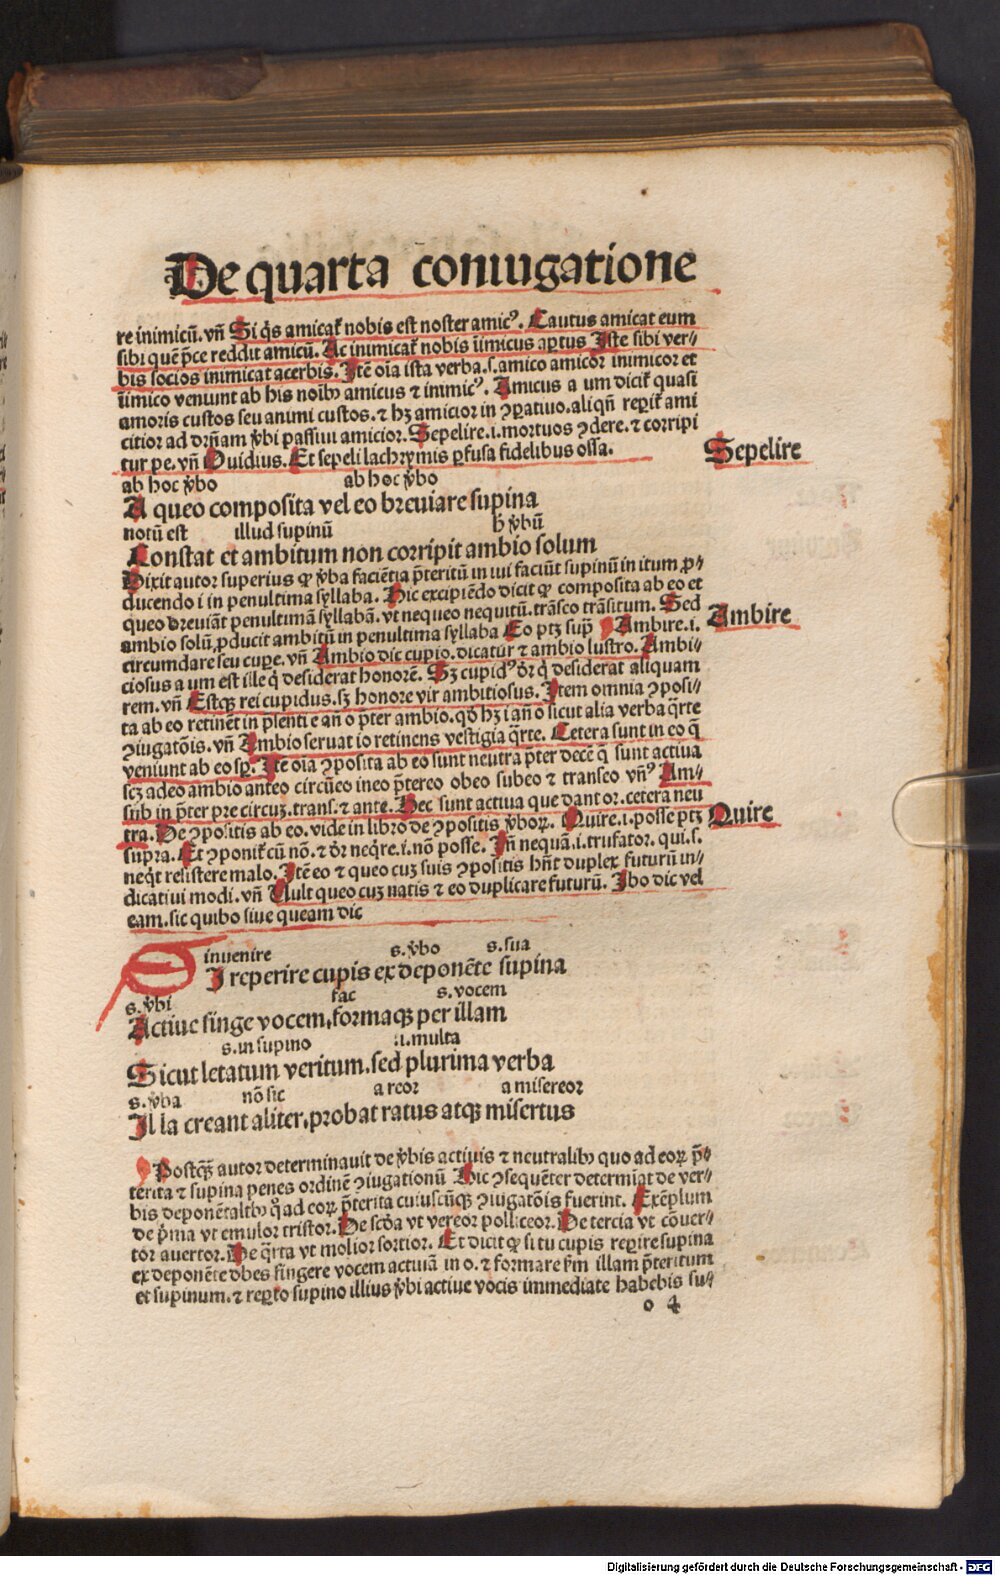 De quarta coniugatione
re inimicū. vñ Si q̄s amicat᷑ nobis est noster amicꝰ. Cautus amicat eum
sibi quē p̄ce reddit amicū. Ac inimicat᷑ nobis īimicus aꝑtus Iste sibi ver⸗
bis socios inimicat acerbis. Itē oīa ista verba .s. amico amicor inimicor et
īimico veniunt ab his noībꝰ amicus ⁊ inimicꝰ. Amicus a um dicit᷑ quasi
amoris custos seu animi custos. ⁊ hꝫ amicior in ꝯꝑatiuo. aliqn̄ reꝑit᷑ ami
citior ad dr̄nam v̄bi passiui amicior. Sepelire .i. mortuos ꝯdere. ⁊ corripi
tur pe. vñ Ouidius. Et sepeli lachrymis ꝑfusa fidelibus ossa.
Sepelire
ab hoc v̄bo ab hoc v̄bo
A queo composita vel eo breuiare supina
notū est illud supinū h̄ v̄bū
Constat et ambitum non corripit ambio solum
Dixit autor superius ꝙ v̄ba faciētia p̄teritū in iui faciūt supinū in itum ꝓ⸗
ducendo i in penultima syllaba. Hic excipiēdo dicit ꝙ composita ab eo et
queo breuiāt penultimā syllabā. vt nequeo nequitū. trāseo trāsitum. Sed
ambio solū ꝓducit ambitū in penultima syllaba Eo ptꝫ sup̄ Ambire .i.
Ambire
circumdare seu cuꝑe. vñ Ambio dic cupio. dicatur ⁊ ambio lustro. Ambi⸗
ciosus a um est ille q̄ desiderat honorē. Sꝫ cupidꝰ dr̄ q̄ desiderat aliquam
rem. vñ Estqꝫ rei cupidus. sꝫ honore vir ambitiosus. Item omnia ꝯposi⸗
ta ab eo retinēt in p̄senti e añ o p̄ter ambio. qd̄ hꝫ i añ o sicut alia verba q̄rte
ꝯiugatōis. vñ Ambio seruat io retinens vestigia q̄rte. Cetera sunt in eo q̄
veniunt ab eo sꝑ. Itē oīa ꝯposita ab eo sunt neutra p̄ter decē q̄ sunt actiua
scꝫ adeo ambio anteo circūeo ineo p̄tereo obeo subeo ⁊ transeo vñꝰ Am⸗
sub in p̄ter pre circuꝫ. trans. ⁊ ante. Hec sunt actiua que dant or. cetera neu
tra. De ꝯpositis ab eo. vide in libro de ꝯpositis v̄boꝝ. Quire .i. posse ptꝫ
Quire
supra. Et ꝯponit᷑ cū nō. ⁊ dr̄ neq̄re .i. nō posse. Iñ nequā .i. trufator. qui .s.
neq̄t resistere malo. Itē eo ⁊ queo cuꝫ suis ꝯpositis hn̄t duplex futurū in⸗
dicatiui modi. vñ Uult queo cuꝫ natis ⁊ eo duplicare futurū. Ibo dic vel
eam. sic quibo siue queam dic
inuenire s. v̄bo s. sua
I reperire cupis ex deponēte supina
s. v̄bi fac s. vocem
Actiue finge vocem, formaqꝫ per illam
s. in supino .i. multa
Sicut letatum veritum. sed plurima verba
s. v̄ba nō sic a reor a misereor
Il la creant aliter, probat ratus atqꝫ misertus
Postqꝫ autor determinauit de v̄bis actiuis ⁊ neutralibꝰ quo ad eoꝝ p̄⸗
terita ⁊ supina penes ordinē ꝯiugationū Hic ꝯsequēter determīat de ver⸗
bis deponētalibꝰ q̄ ad eoꝝ p̄terita cuiuscūqꝫ ꝯiugatōis fuerint. Exēplum
de p̄ma vt emulor tristor. De scd̄a vt vereor polliceor. De tercia vt cōuer⸗
tor auertor. De q̄rta vt molior sortior. Et dicit ꝙ si tu cupis reꝑire supina
ex deponēte dbes fingere vocem actiuā in o. ⁊ formare ẜm illam p̄teritum
et supinum. ⁊ reꝑto supino illius v̄bi actiue vocis immediate habebis su⸗
o 4
Digitalisierung gefördert durch die Deutsche Forschungsgemeinschaft - DFG